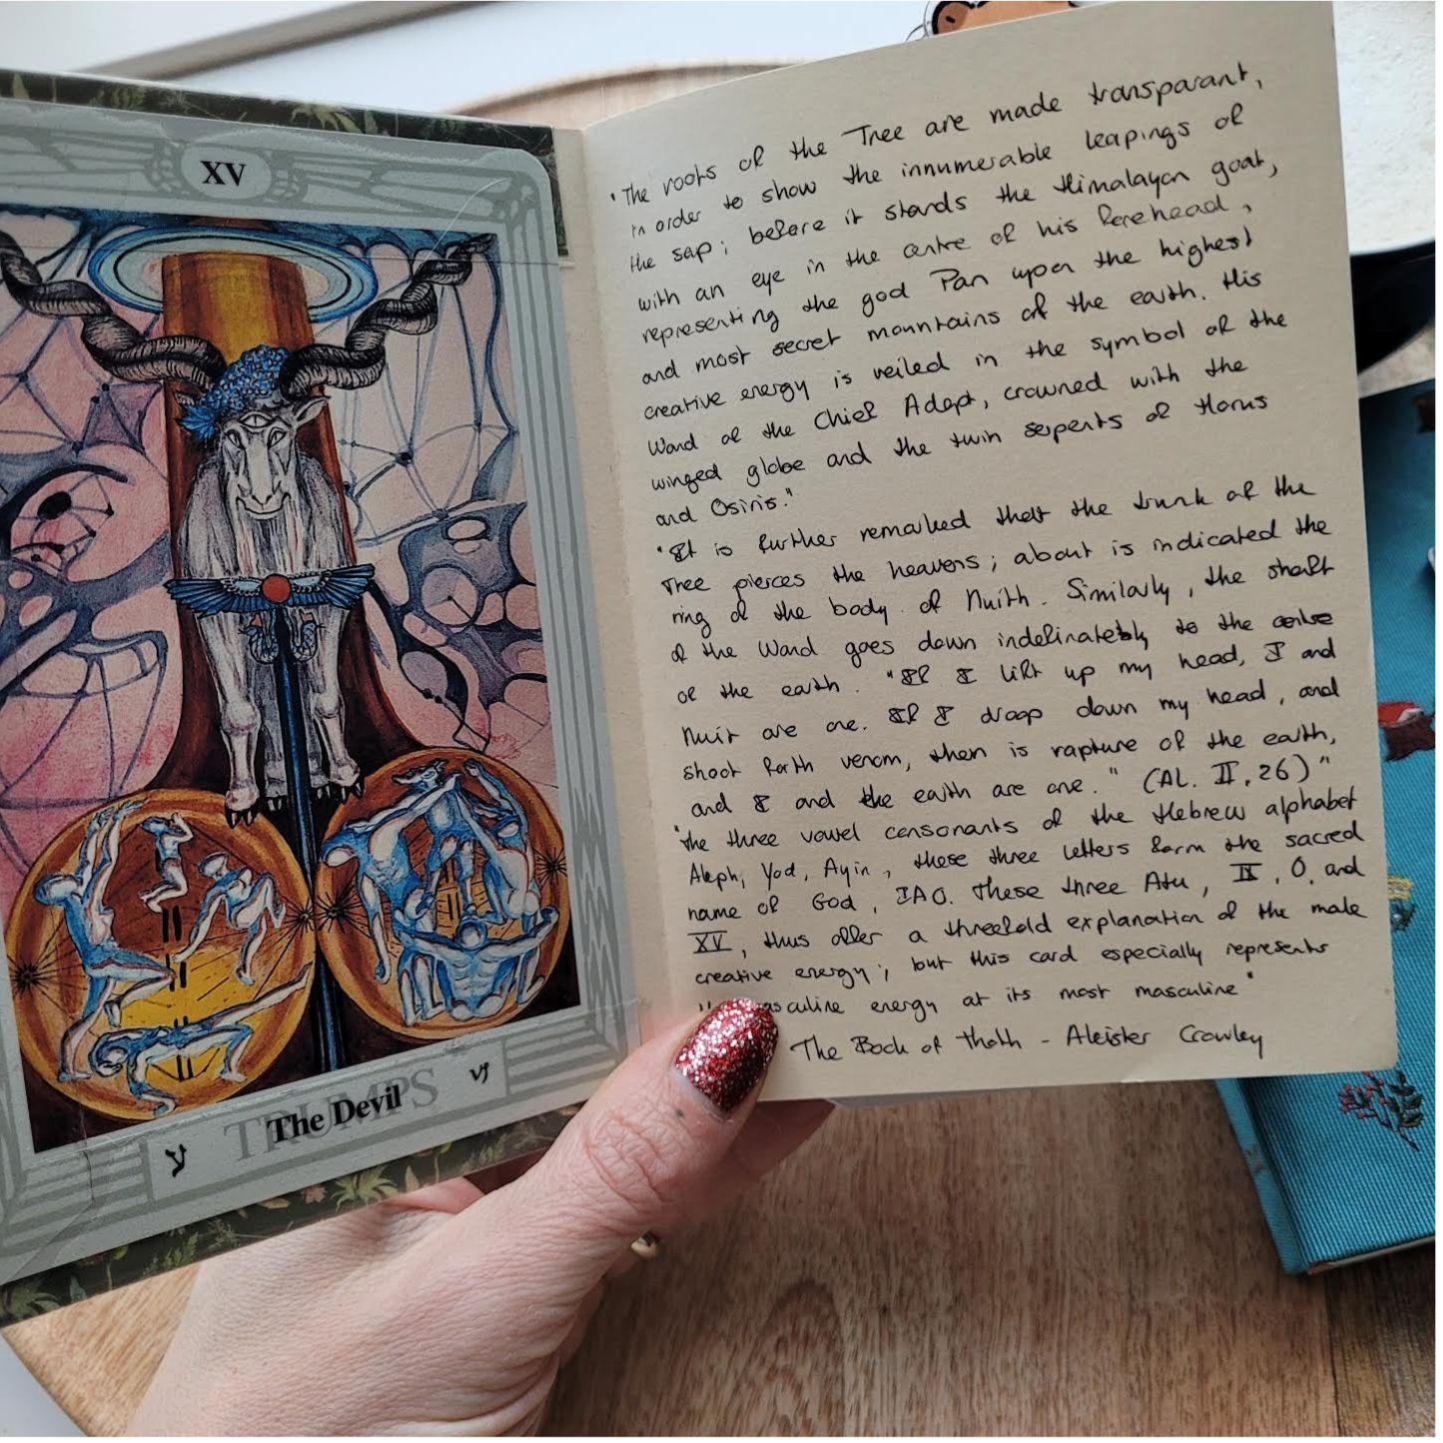 XV
TRUMPS
The Devil
ע
♑
"The roots of the Tree are made transparant,
in order to show the innumerable leapings of
the sap; before it stands the Himalayan goat,
with an eye in the centre of his forehead,
representing the god Pan upon the highest
and most secret mountains of the earth. His
creative energy is veiled in the symbol of the
Wand of the Chief Adept, crowned with the
winged globe and the twin serpents of Horus
and Osiris."
"It is further remarked that the trunk of the
Tree pierces the heavens; about is indicated the
ring of the body of Nuith. Similarly, the shaft
of the Wand goes down indefinately to the centre
of the earth. "If I lift up my head, I and
Nuit are one. If I droop down my head, and
shoot forth venom, then is rapture of the earth,
and I and the earth are one." (AL. II, 26)"
"The three vowel consonants of the Hebrew alphabet
Aleph, Yod, Ayin, these three letters form the sacred
name of God, IAO. These three Atu, IX, 0, and
XV, thus offer a threefold explanation of the male
creative energy; but this card especially represents
masculine energy at its most masculine"
The Book of Thoth - Aleister Crowley